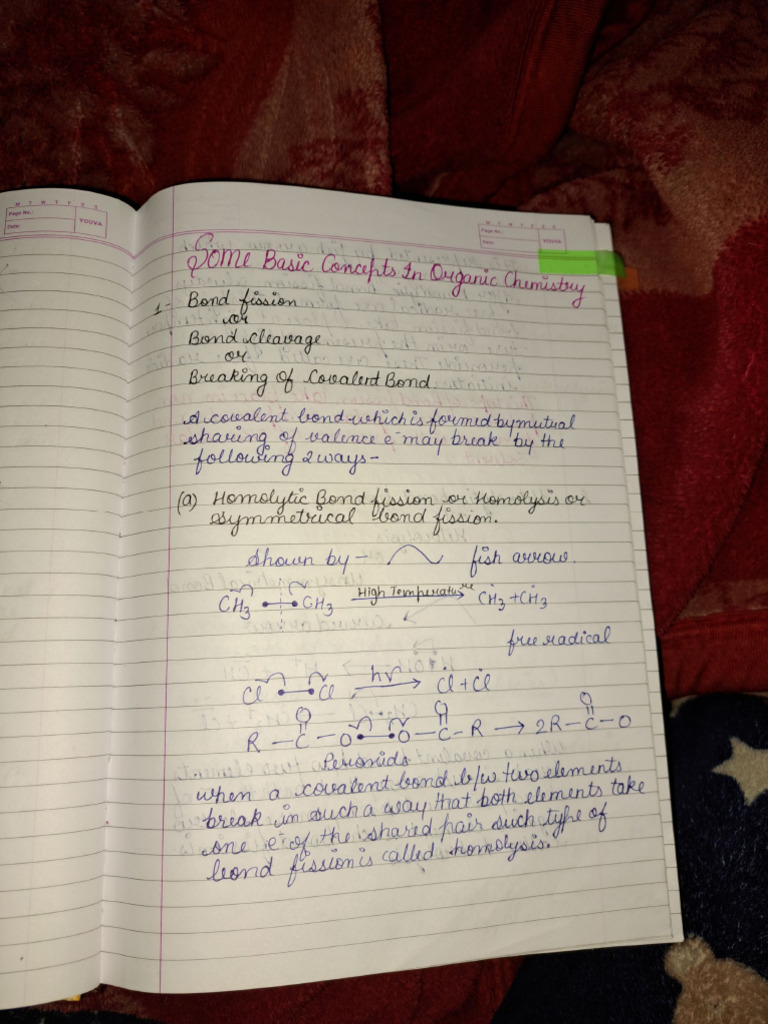 M T W T F S S
Page No.:
Date:
YOUVA
M T W T F S S
Page No.:
Date:
YOUVA
Some Basic Concepts In Organic Chemistry
1- Bond fission
or
Bond Cleavage
or
Breaking of Covalent Bond.
A covalent bond which is formed by mutual
sharing of valence e⁻ may break by the
following 2 ways-
(a) Homolytic Bond fission or Homolysis or
symmetrical bond fission.
Shown by - fish arrow.
CH₃ CH₃ High Temperature ĊH₃ + ĊH₃
free radical
Cl Cl hν Ċl + Ċl
O O O
R - C - O O - C - R → 2R - C - O
when a covalent bond b/w two elements
break in such a way that both elements take
one e⁻ of the shared pair such type of
bond fission is called homolysis.